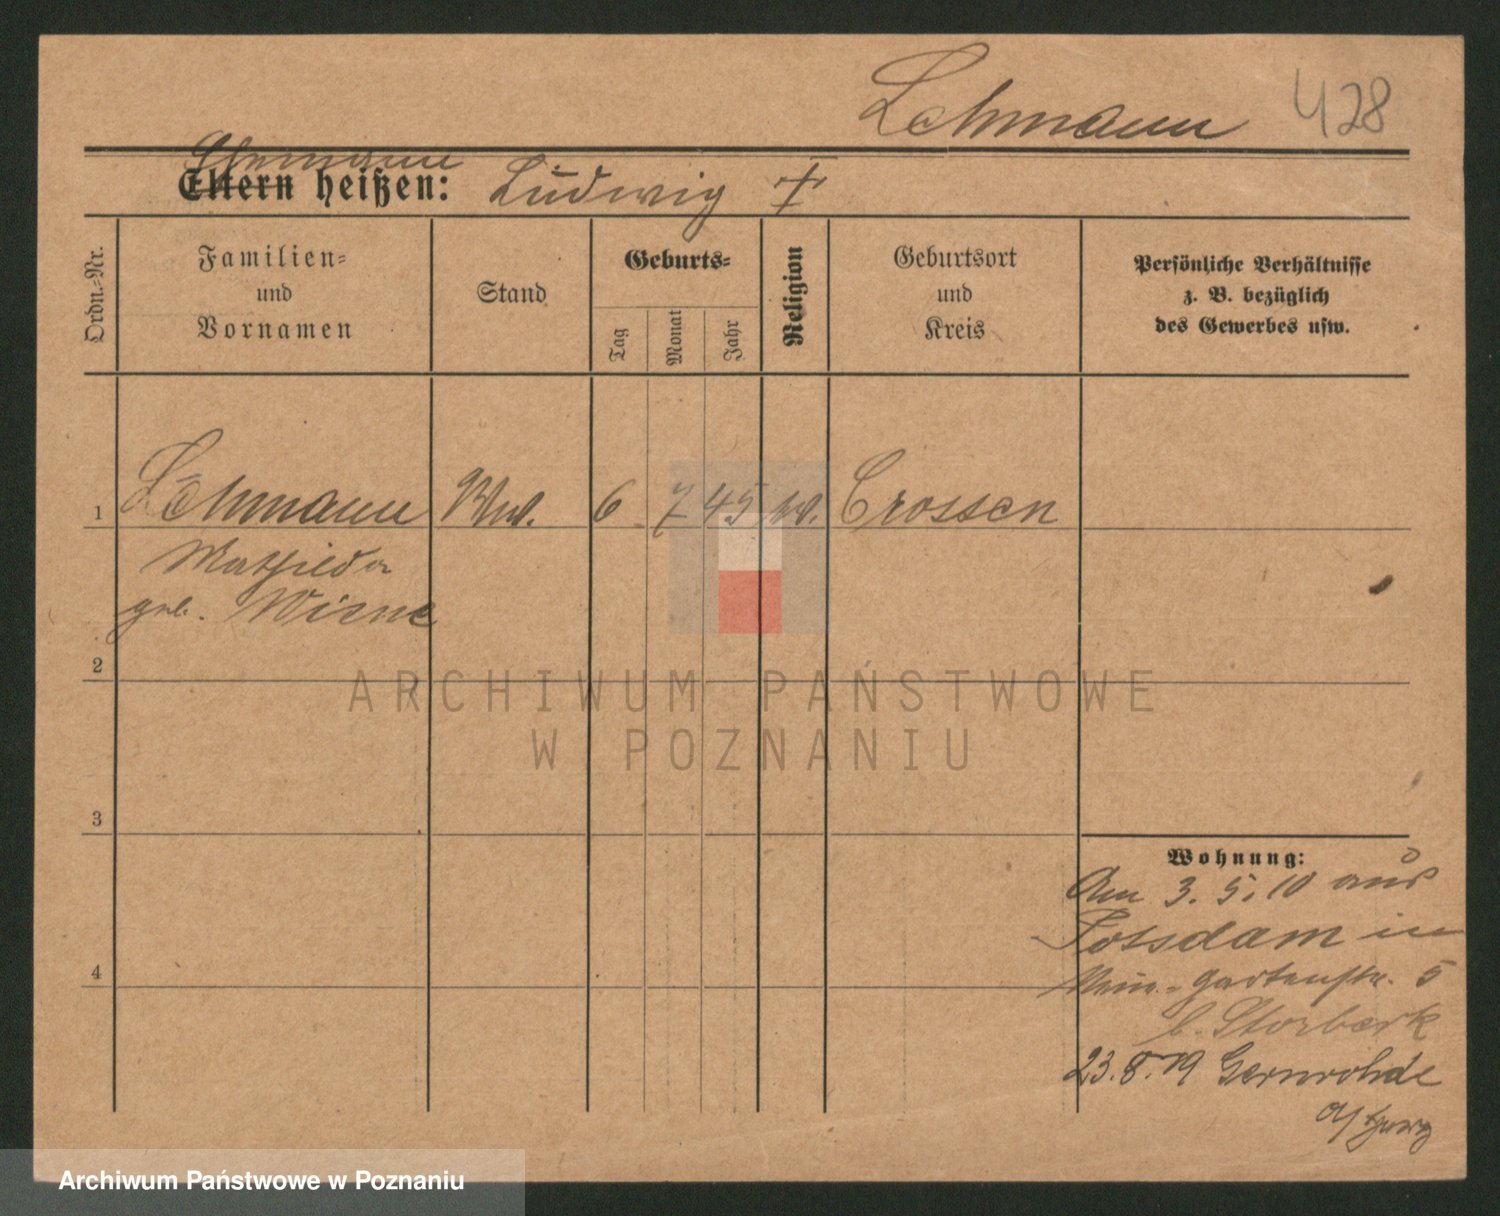 Lehmann 428
Ehemann
Eltern heißen: Ludwig †
Ordn.-Nr.
Familien-
und
Vornamen
Stand
Geburts-
Tag
Monat
Jahr
Religion
Geburtsort
und
Kreis
Persönliche Verhältnisse
z. B. bezüglich
des Gewerbes usw.
1 Lehmann Ww. 6 7 45 Crossen
Mathilda
geb. Wiene
2
3
4
Wohnung:
Am 3.5.10 aus
Potsdam in
Gartenstr. 5
b. Storbeck
23.8.19 Gernrohde
a/Harz
ARCHIWUM PAŃSTWOWE
W POZNANIU
Archiwum Państwowe w Poznaniu